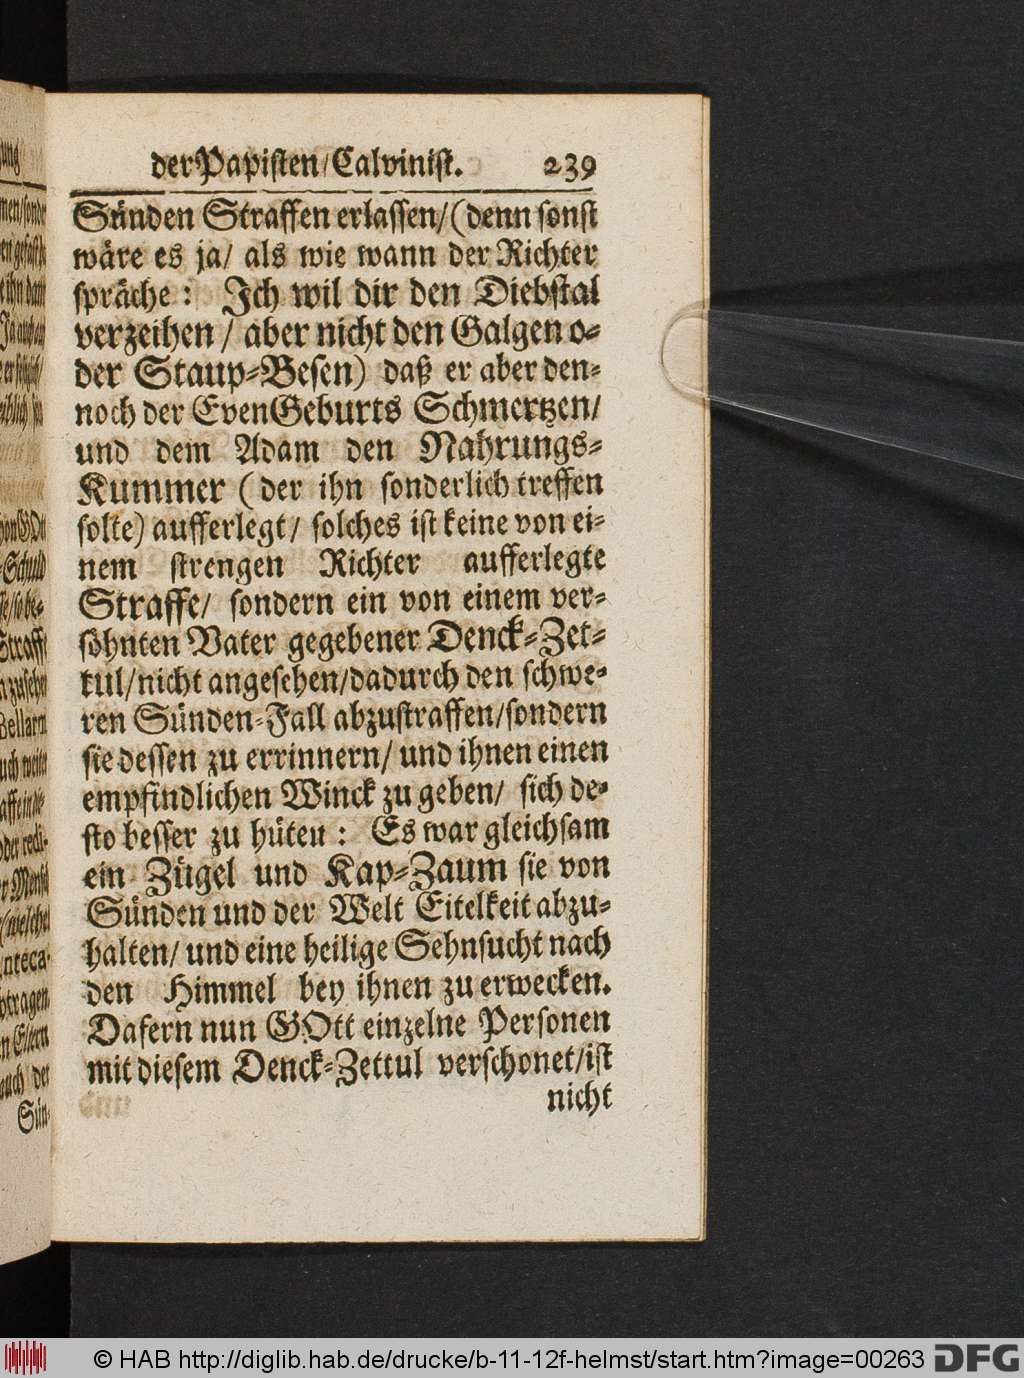 der Papisten/Calvinist. 239
Sünden Straffen erlassen/(denn sonst
wäre es ja/ als wie wann der Richter
spräche: Ich wil dir den Diebstal
verzeihen/ aber nicht den Galgen o-
der Staup-Besen) daß er aber den-
noch der Even Geburts Schmertzen/
und dem Adam den Nahrungs-
Kummer (der ihn sonderlich treffen
solte) aufferlegt/ solches ist keine von ei-
nem strengen Richter aufferlegte
Straffe/ sondern ein von einem ver-
söhnten Vater gegebener Denck-Zet-
tul/nicht angesehen/dadurch den schwe-
ren Sünden-Fall abzustraffen/sondern
sie dessen zu errinnern/ und ihnen einen
empfindlichen Winck zu geben/ sich de-
sto besser zu hüten: Es war gleichsam
ein Zügel und Kap-Zaum sie von
Sünden und der Welt Eitelkeit abzu-
halten/ und eine heilige Sehnsucht nach
den Himmel bey ihnen zu erwecken.
Dafern nun GOtt einzelne Personen
mit diesem Denck-Zettul verschonet/ist
nicht
© HAB http://diglib.hab.de/drucke/b-11-12f-helmst/start.htm?image=00263 DFG